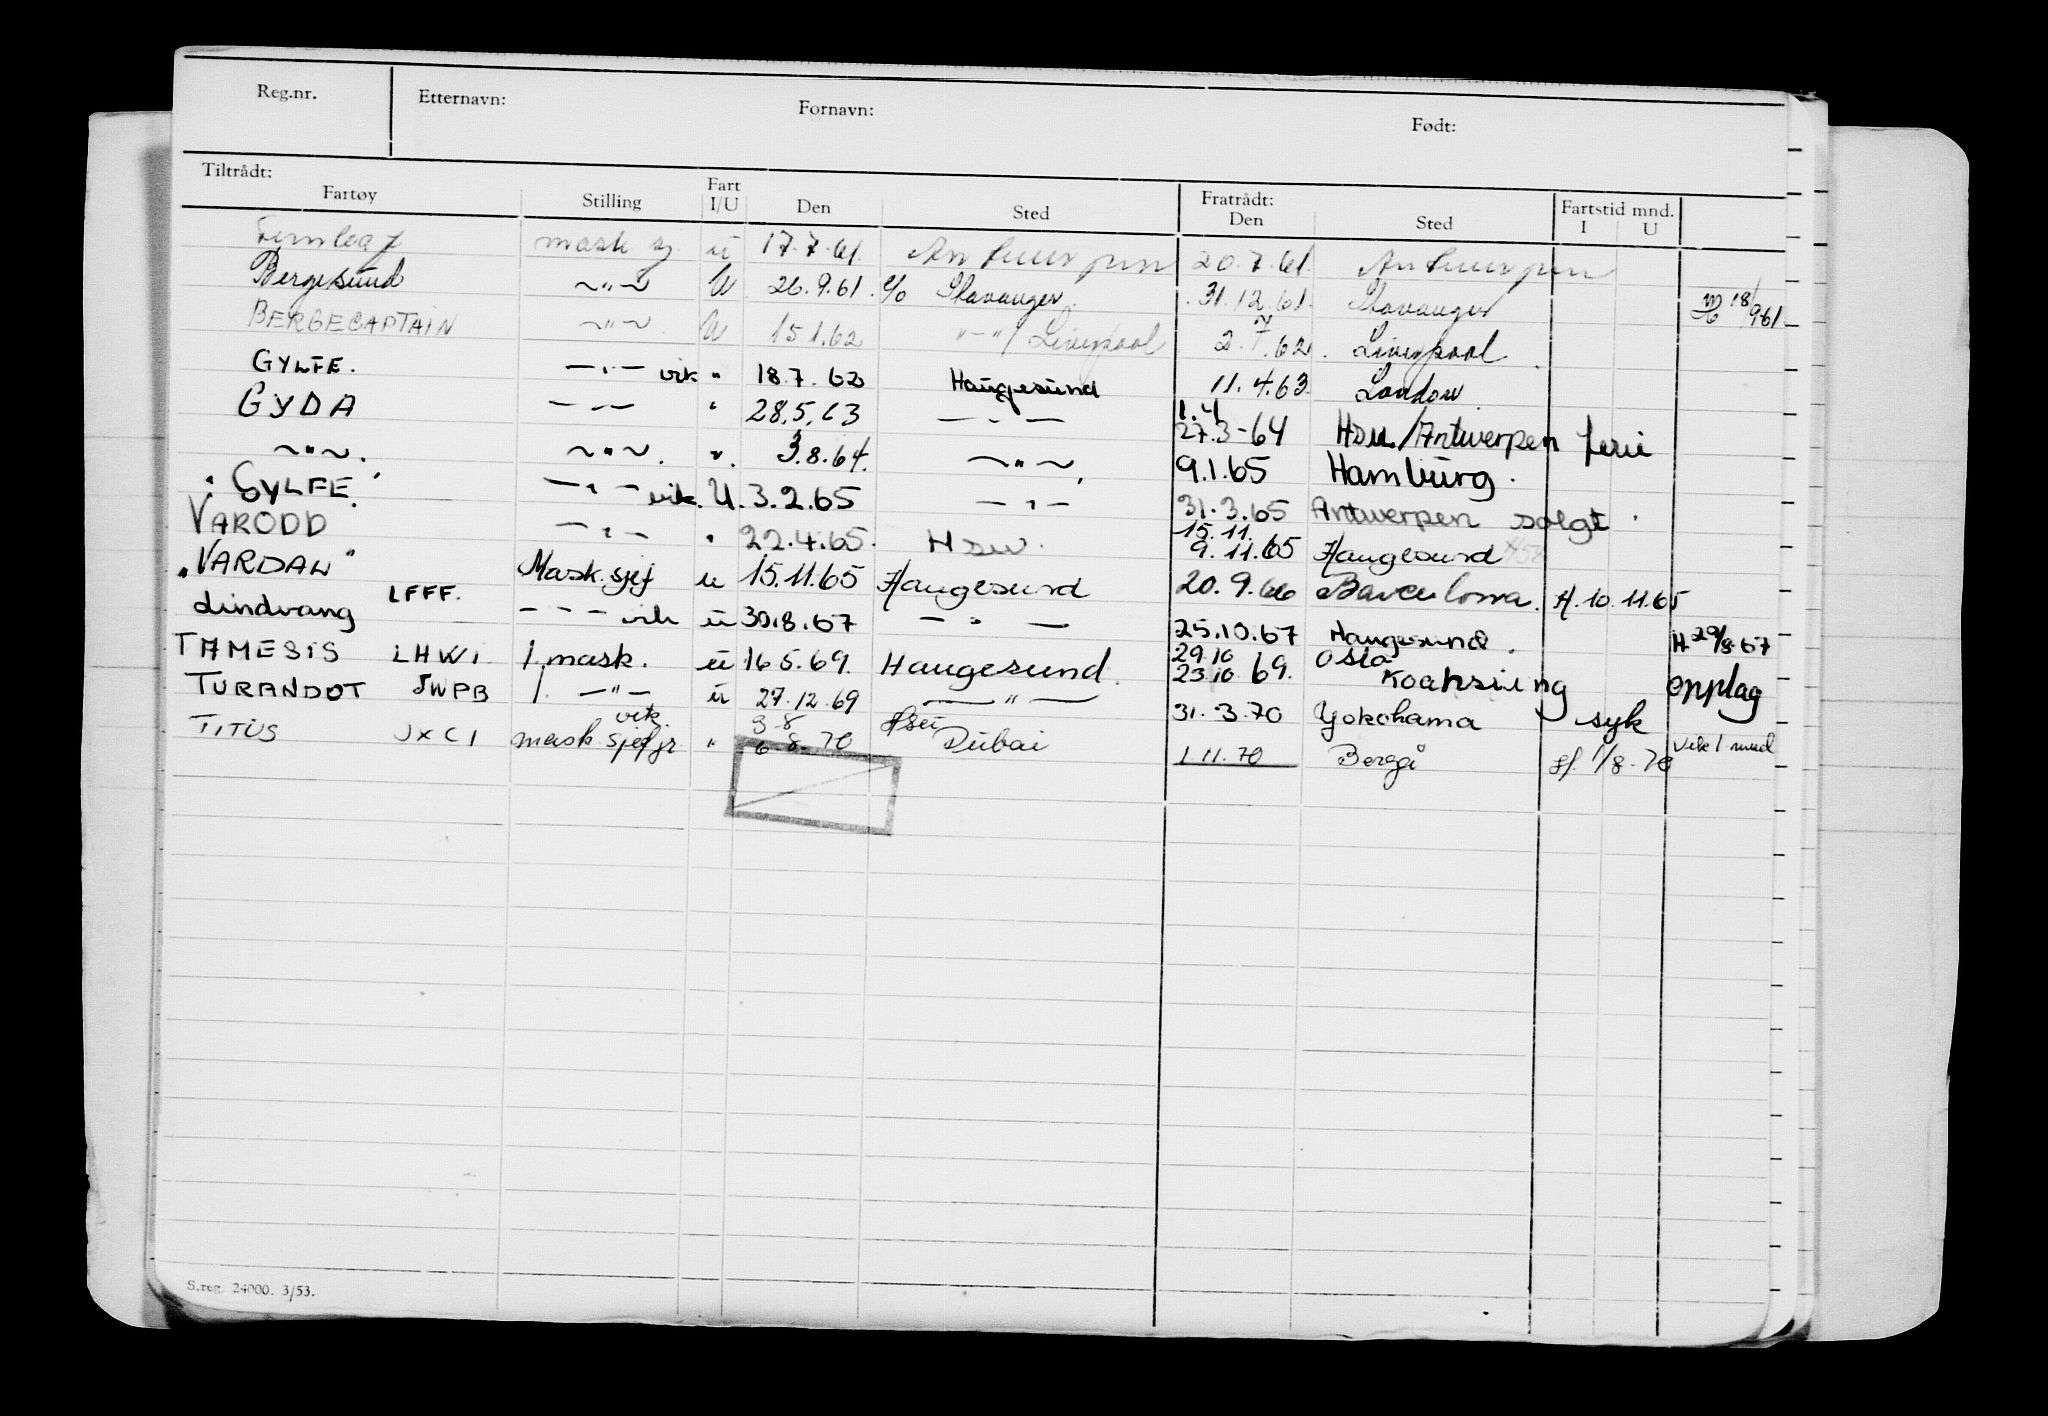 Reg.nr. Etternavn: Fornavn: Født:
Tiltrådt: Fart Fratrådt: Fartstid mnd.
Fartøy Stilling I/U Den Sted Den Sted I U
mask sj. u 17.7.61. Antwerpen 20.7.61. Antwerpen
Bergesund ~"~ U 26.9.61. Stavanger. 31.12.61. Stavanger 18/9 61
BERGECAPTAIN ~"~ U 15 1.62 -"-/ Liverpool 2.7.62. Liverpool
GYLFE. -"- vik " 18.7.62 Haugesund 11.4.63. London
GYDA -"- " 28.5.63 -"- 1.4 27.3-64 Hsu/Antwerpen ferie
~"~. ~"~. ". 3.8.64. ~"~ 9.1.65 Hamburg.
"GYLFE." -"- vik. U. 3.2.65 -"- 31.3.65 Antwerpen solgt.
VARODD -"- " 22.4.65. Hsu. 15.11. 9.11.65 Haugesund
"VARDAN" LFFF. Mask.sjef u 15.11.65 Haugesund 20.9.66 Barcelona. H. 10.11.65
Lindvang - - - vik u 30.8.67 - " - 25.10.67 Haugesund. H 29/8.67
TAMESIS LHWI 1. mask. u 16 5.69. Haugesund. 29.10 23.10 69. Oslo Koahsiung opplag
TURANDOT JWPB 1. -"- u 27.12.69 -"- 31.3.70 Yokohama syk
TITUS JXCI mask sjef jr vik. " 3 8 6.8.70 Hsu Dubai 1.11.70 Bergå 1/8.70 vik 1 mnd
S.reg. 24000. 3/53.